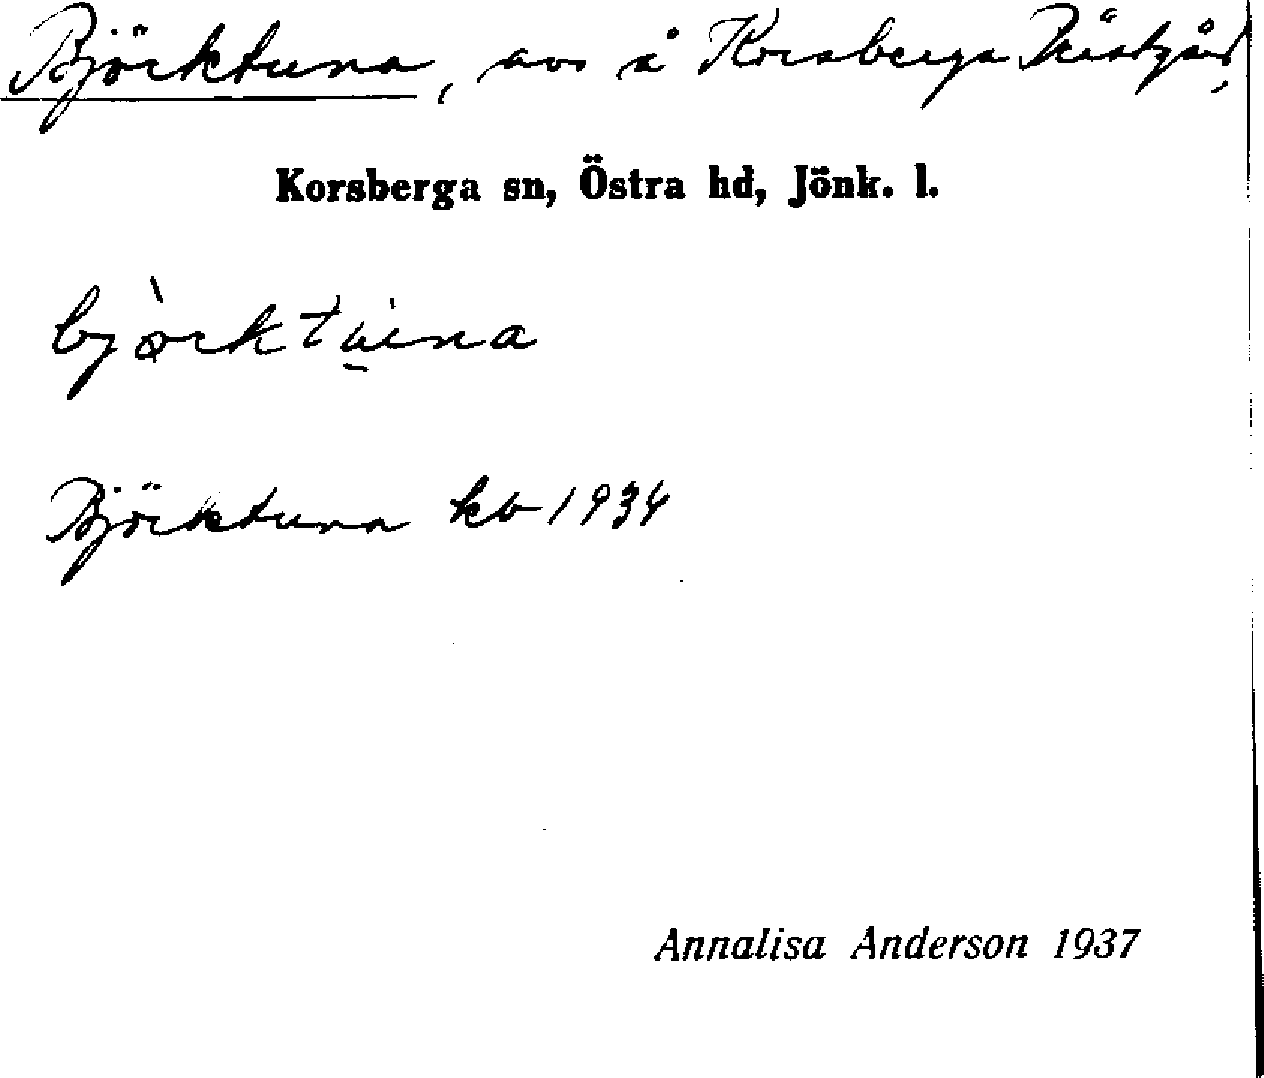 Björktuna, avs å Korsberga Prästgård,
Korsberga sn, Östra hd, Jönk. l.
Björktuna kb 1934
Annalisa Anderson 1937